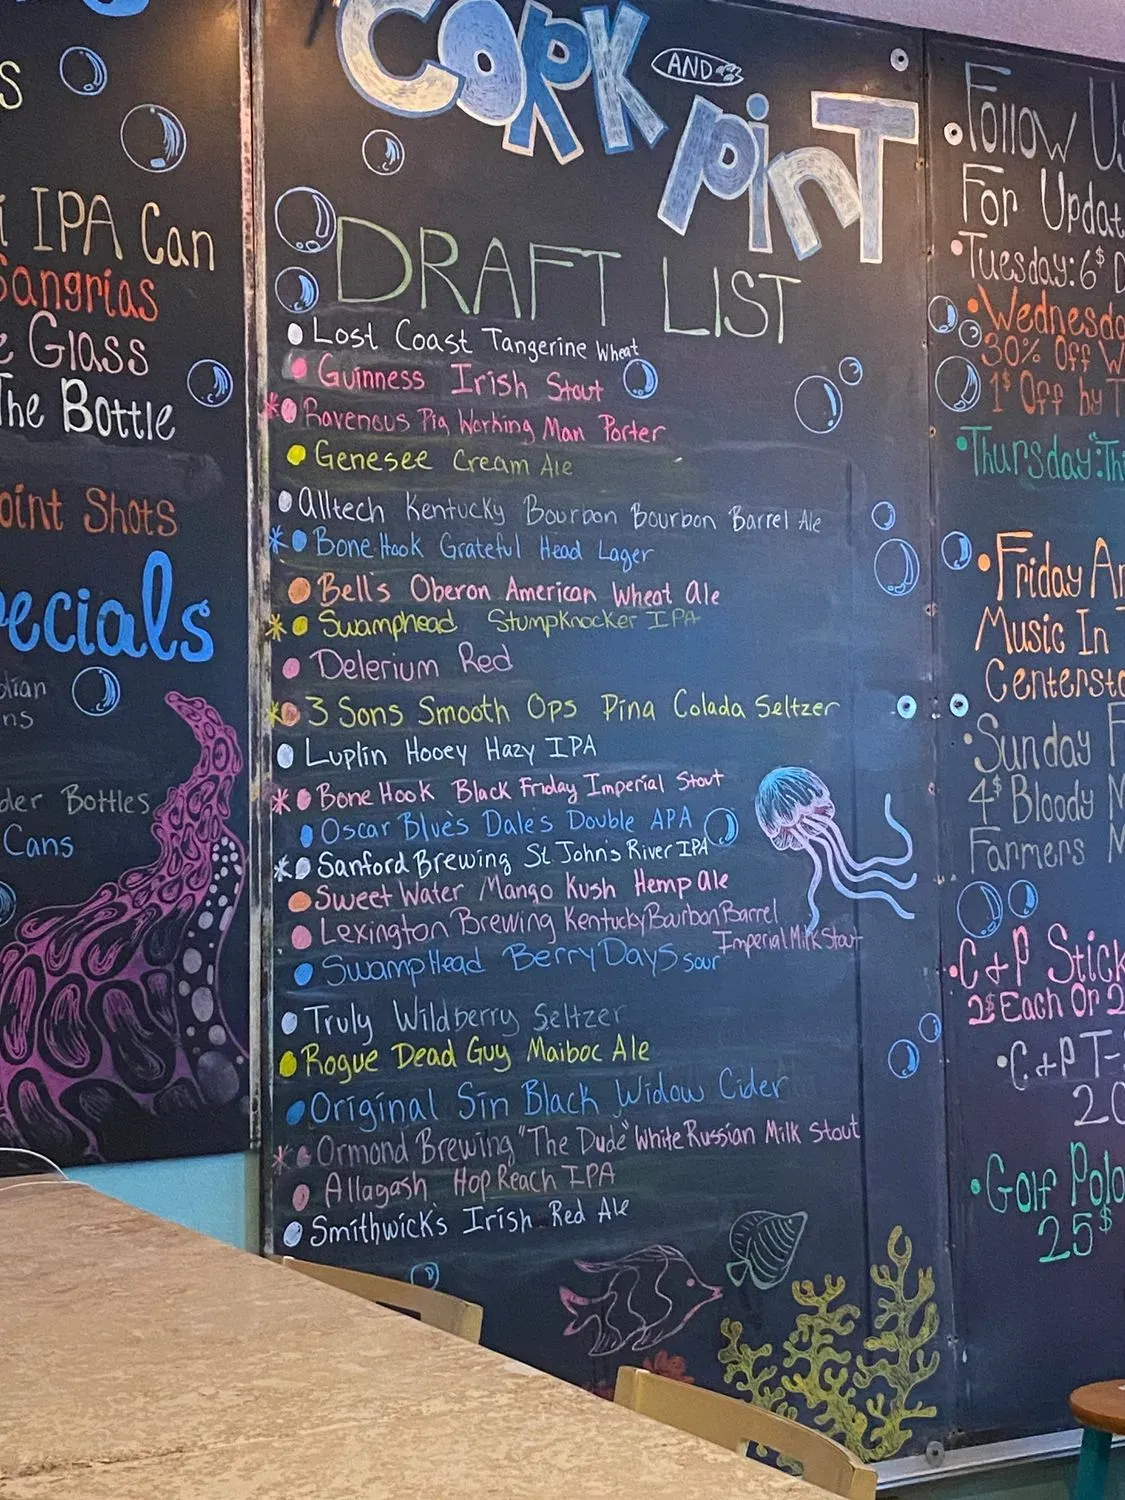 s
IPA Can
Sangrias
Glass
The Bottle
Point Shots
Specials
ns
der Bottles
Cans
CORK AND PINT
DRAFT LIST
Lost Coast Tangerine Wheat
Guinness Irish Stout
* Ravenous Pig Working Man Porter
Genesee Cream Ale
Alltech Kentucky Bourbon Bourbon Barrel Ale
* Bone Hook Grateful Head Lager
Bell's Oberon American Wheat Ale
* Swamphead Stumpknocker IPA
Delerium Red
* 3 Sons Smooth Ops Pina Colada Seltzer
Luplin Hooey Hazy IPA
* Bone Hook Black Friday Imperial Stout
Oscar Blue's Dale's Double APA
* Sanford Brewing St John's River IPA
Sweet Water Mango Kush Hemp Ale
Lexington Brewing Kentucky Bourbon Barrel
Imperial Milk Stout
SwampHead Berry Days Sour
Truly Wildberry Seltzer
Rogue Dead Guy Maiboc Ale
Original Sin Black Widow Cider
* Ormond Brewing "The Dude" White Russian Milk Stout
Allagash Hop Reach IPA
Smithwick's Irish Red Ale
Follow Us
For Updat
Tuesday: 6$ D
Wednesda
30% Off W
1$ Off by T
Thursday: Th
Friday Ar
Music In
Centersta
Sunday F
4$ Bloody M
Farmers M
C+P Stick
2$ Each Or 2
C+P T-
20
Golf Polo
25$